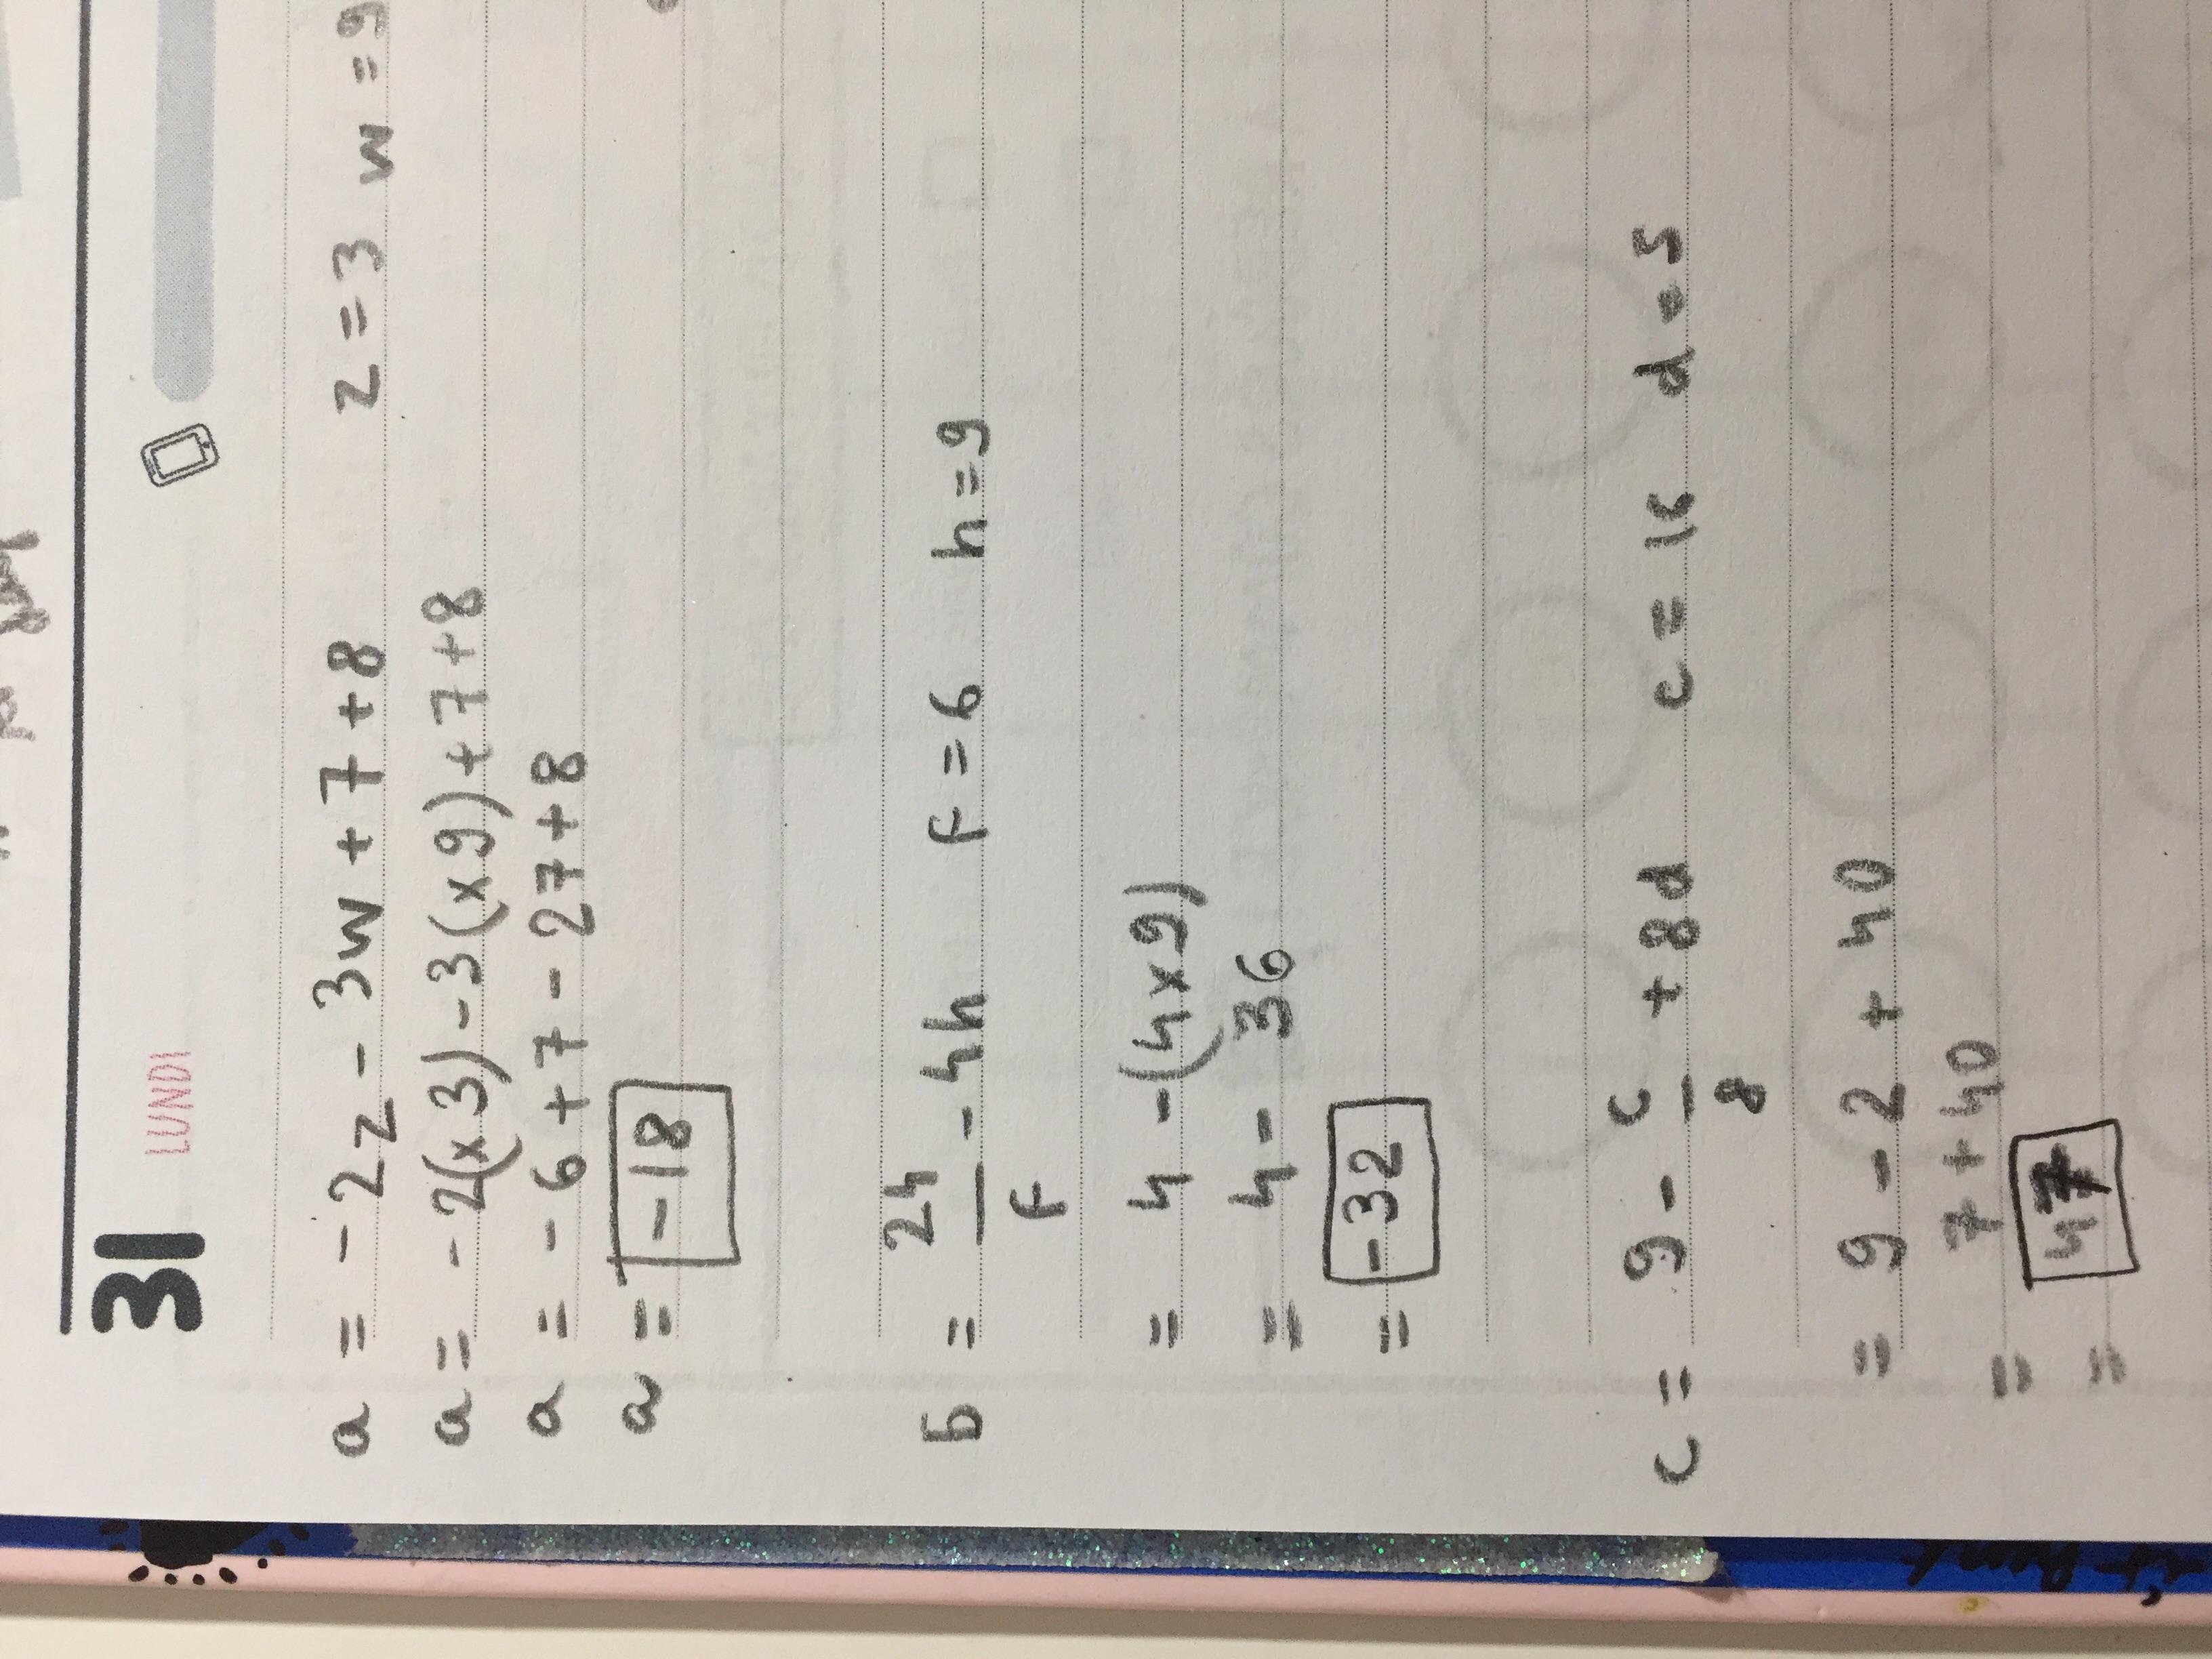 31 LUNDI
a = -2z - 3w + 7 + 8 z = 3 w = 9
a = -2(x3) - 3(x9) + 7 + 8
a = -6 + 7 - 27 + 8
a = -18
b = 24/f - 4h f = 6 h = 9
= 4 - (4x9)
= 4 - 36
= -32
c = 9 - c/8 + 8d c = 16 d = 5
= 9 - 2 + 40
= 7 + 40
= 47